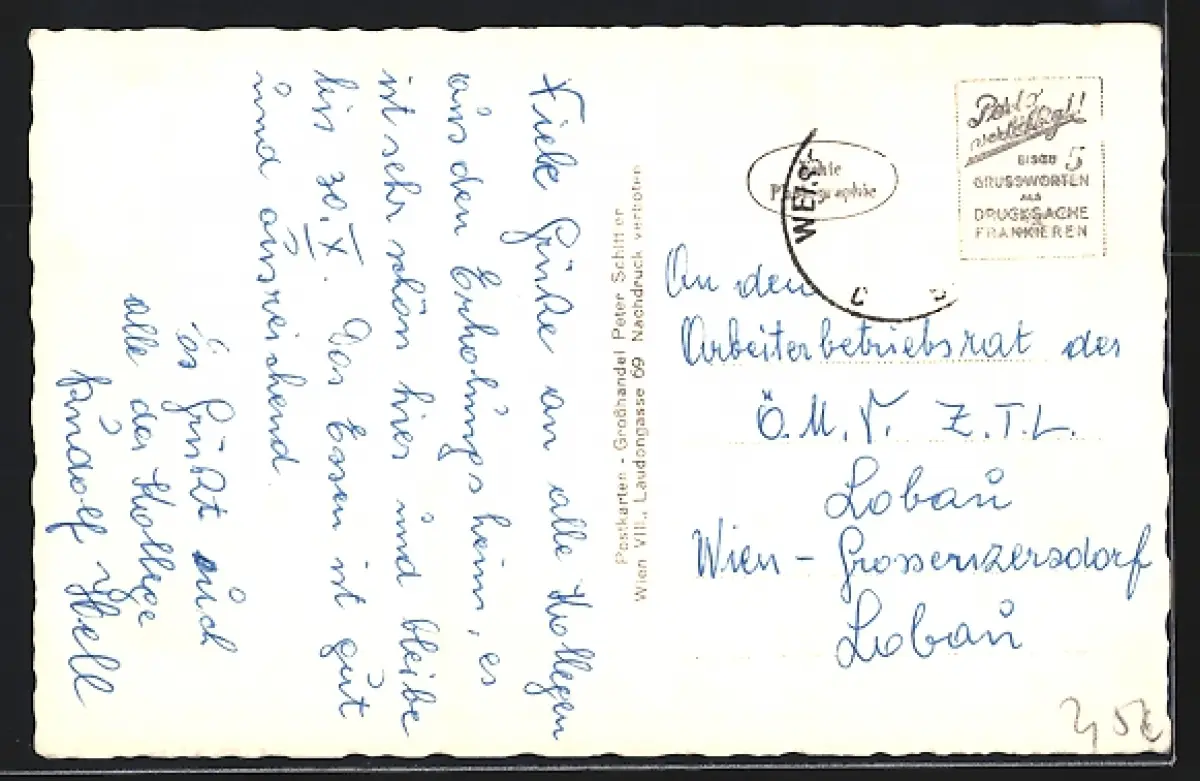 Liebe Grüße an alle Kollegen
aus den Erholungsheim, es
ist sehr schön hier und bleibe
bis 30. X. Das Essen ist gut
und ausreichend
Es Grüßt euch
alle der Kollege
Postkarten - Großhandel Peter Schiffer
Wien VIII., Laudongasse 69 Nachdruck verboten
Echte
Photographie
WEIS
Post
BIS ZU 5
GRUSSWORTEN
ALS
DRUCKSACHE
FRANKIEREN
An den
Arbeiterbetriebsrat der
Ö.M.V. Z.T.L.
Lobau
Wien - Grossenzersdorf
Lobau